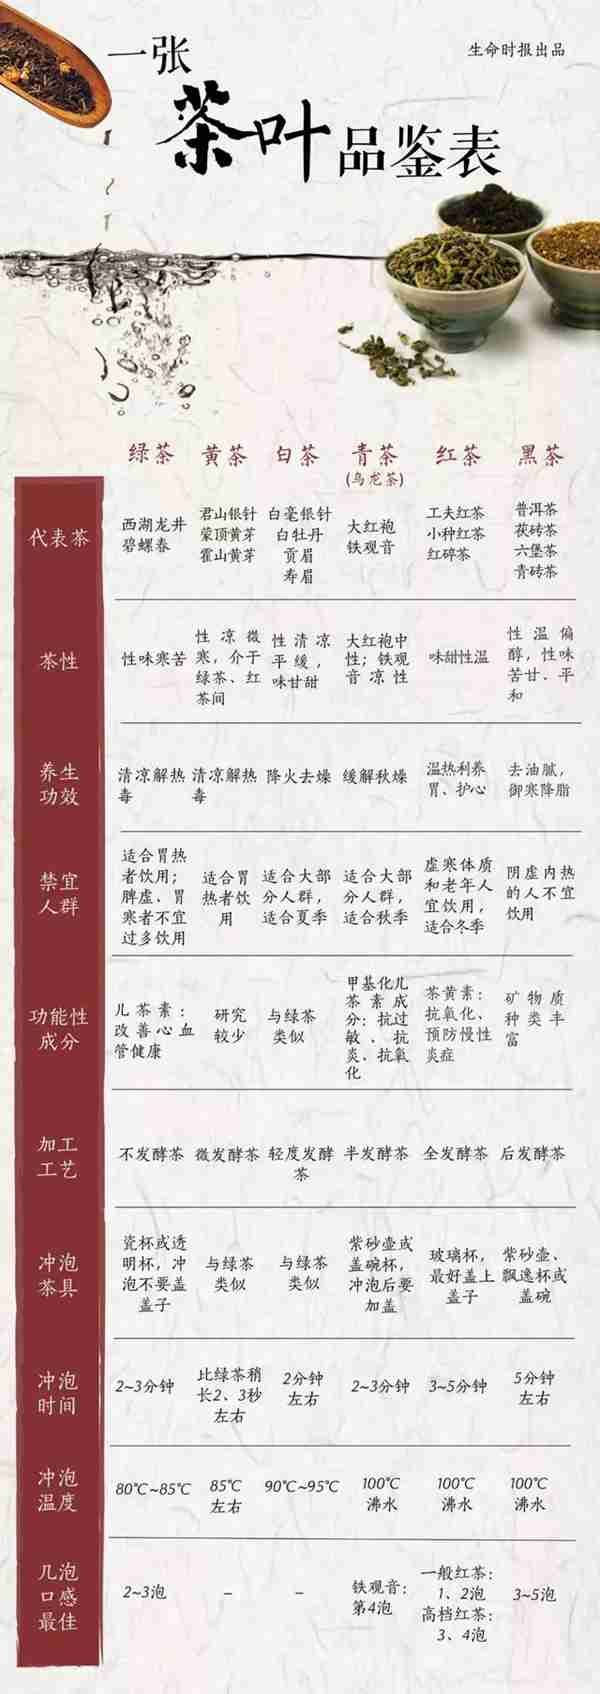 一张
生命时报出品
茶叶品鉴表
绿茶 黄茶 白茶 青茶 红茶 黑茶
(乌龙茶)
代表茶
西湖龙井
碧螺春
君山银针
蒙顶黄芽
霍山黄芽
白毫银针
白牡丹
贡眉
寿眉
大红袍
铁观音
工夫红茶
小种红茶
红碎茶
普洱茶
茯砖茶
六堡茶
青砖茶
茶性
性味寒苦
性凉微
寒，介于
绿茶、红
茶间
性清凉
平缓，
味甘甜
大红袍中
性；铁观
音凉性
味甜性温
性温偏
醇，性味
苦甘、平
和
养生
功效
清凉解热
毒
清凉解热
毒
降火去燥
缓解秋燥
温热利养
胃、护心
去油腻，
御寒降脂
禁宜
人群
适合胃热
者饮用；
脾虚、胃
寒者不宜
过多饮用
适合胃
热者饮
用
适合大部
分人群，
适合夏季
适合大部
分人群，
适合秋季
虚寒体质
和老年人
宜饮用，
适合冬季
阴虚内热
的人不宜
饮用
功能性
成分
儿茶素：
改善心血
管健康
研究
较少
与绿茶
类似
甲基化儿
茶素成
分：抗过
敏、抗
炎、抗氧
化
茶黄素：
抗氧化、
预防慢性
炎症
矿物质
种类丰
富
加工
工艺
不发酵茶
微发酵茶
轻度发酵
茶
半发酵茶
全发酵茶
后发酵茶
冲泡
茶具
瓷杯或透
明杯，冲
泡不要盖
盖子
与绿茶
类似
与绿茶
类似
紫砂壶或
盖碗杯，
冲泡后要
加盖
玻璃杯，
最好盖上
盖子
紫砂壶、
飘逸杯或
盖碗
冲泡
时间
2~3分钟
比绿茶稍
长2、3秒
左右
2分钟
左右
2~3分钟
3~5分钟
5分钟
左右
冲泡
温度
80℃~85℃
85℃
左右
90℃~95℃
100℃
沸水
100℃
沸水
100℃
沸水
几泡
口感
最佳
2~3泡
–
–
铁观音：
第4泡
一般红茶：
1、2泡
高档红茶：
3、4泡
3~5泡